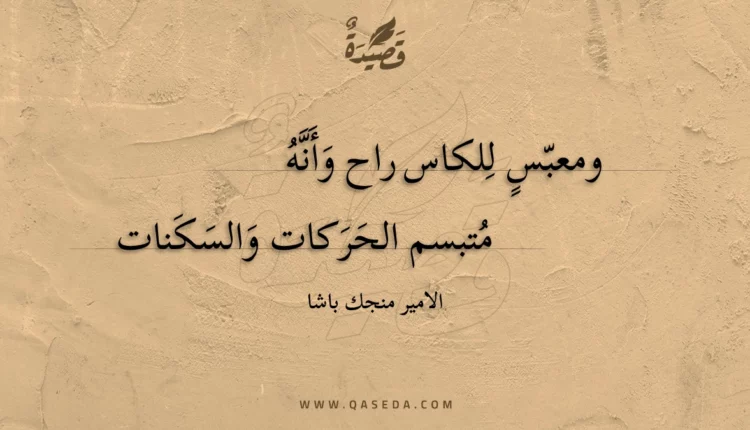 قَصِيدَةٌ
ومعبّسٍ لِلكاس راح وَأَنَّهُ
مُتبسم الحَرَكات وَالسَكَنات
الامير منجك باشا
WWW.QASEDA.COM